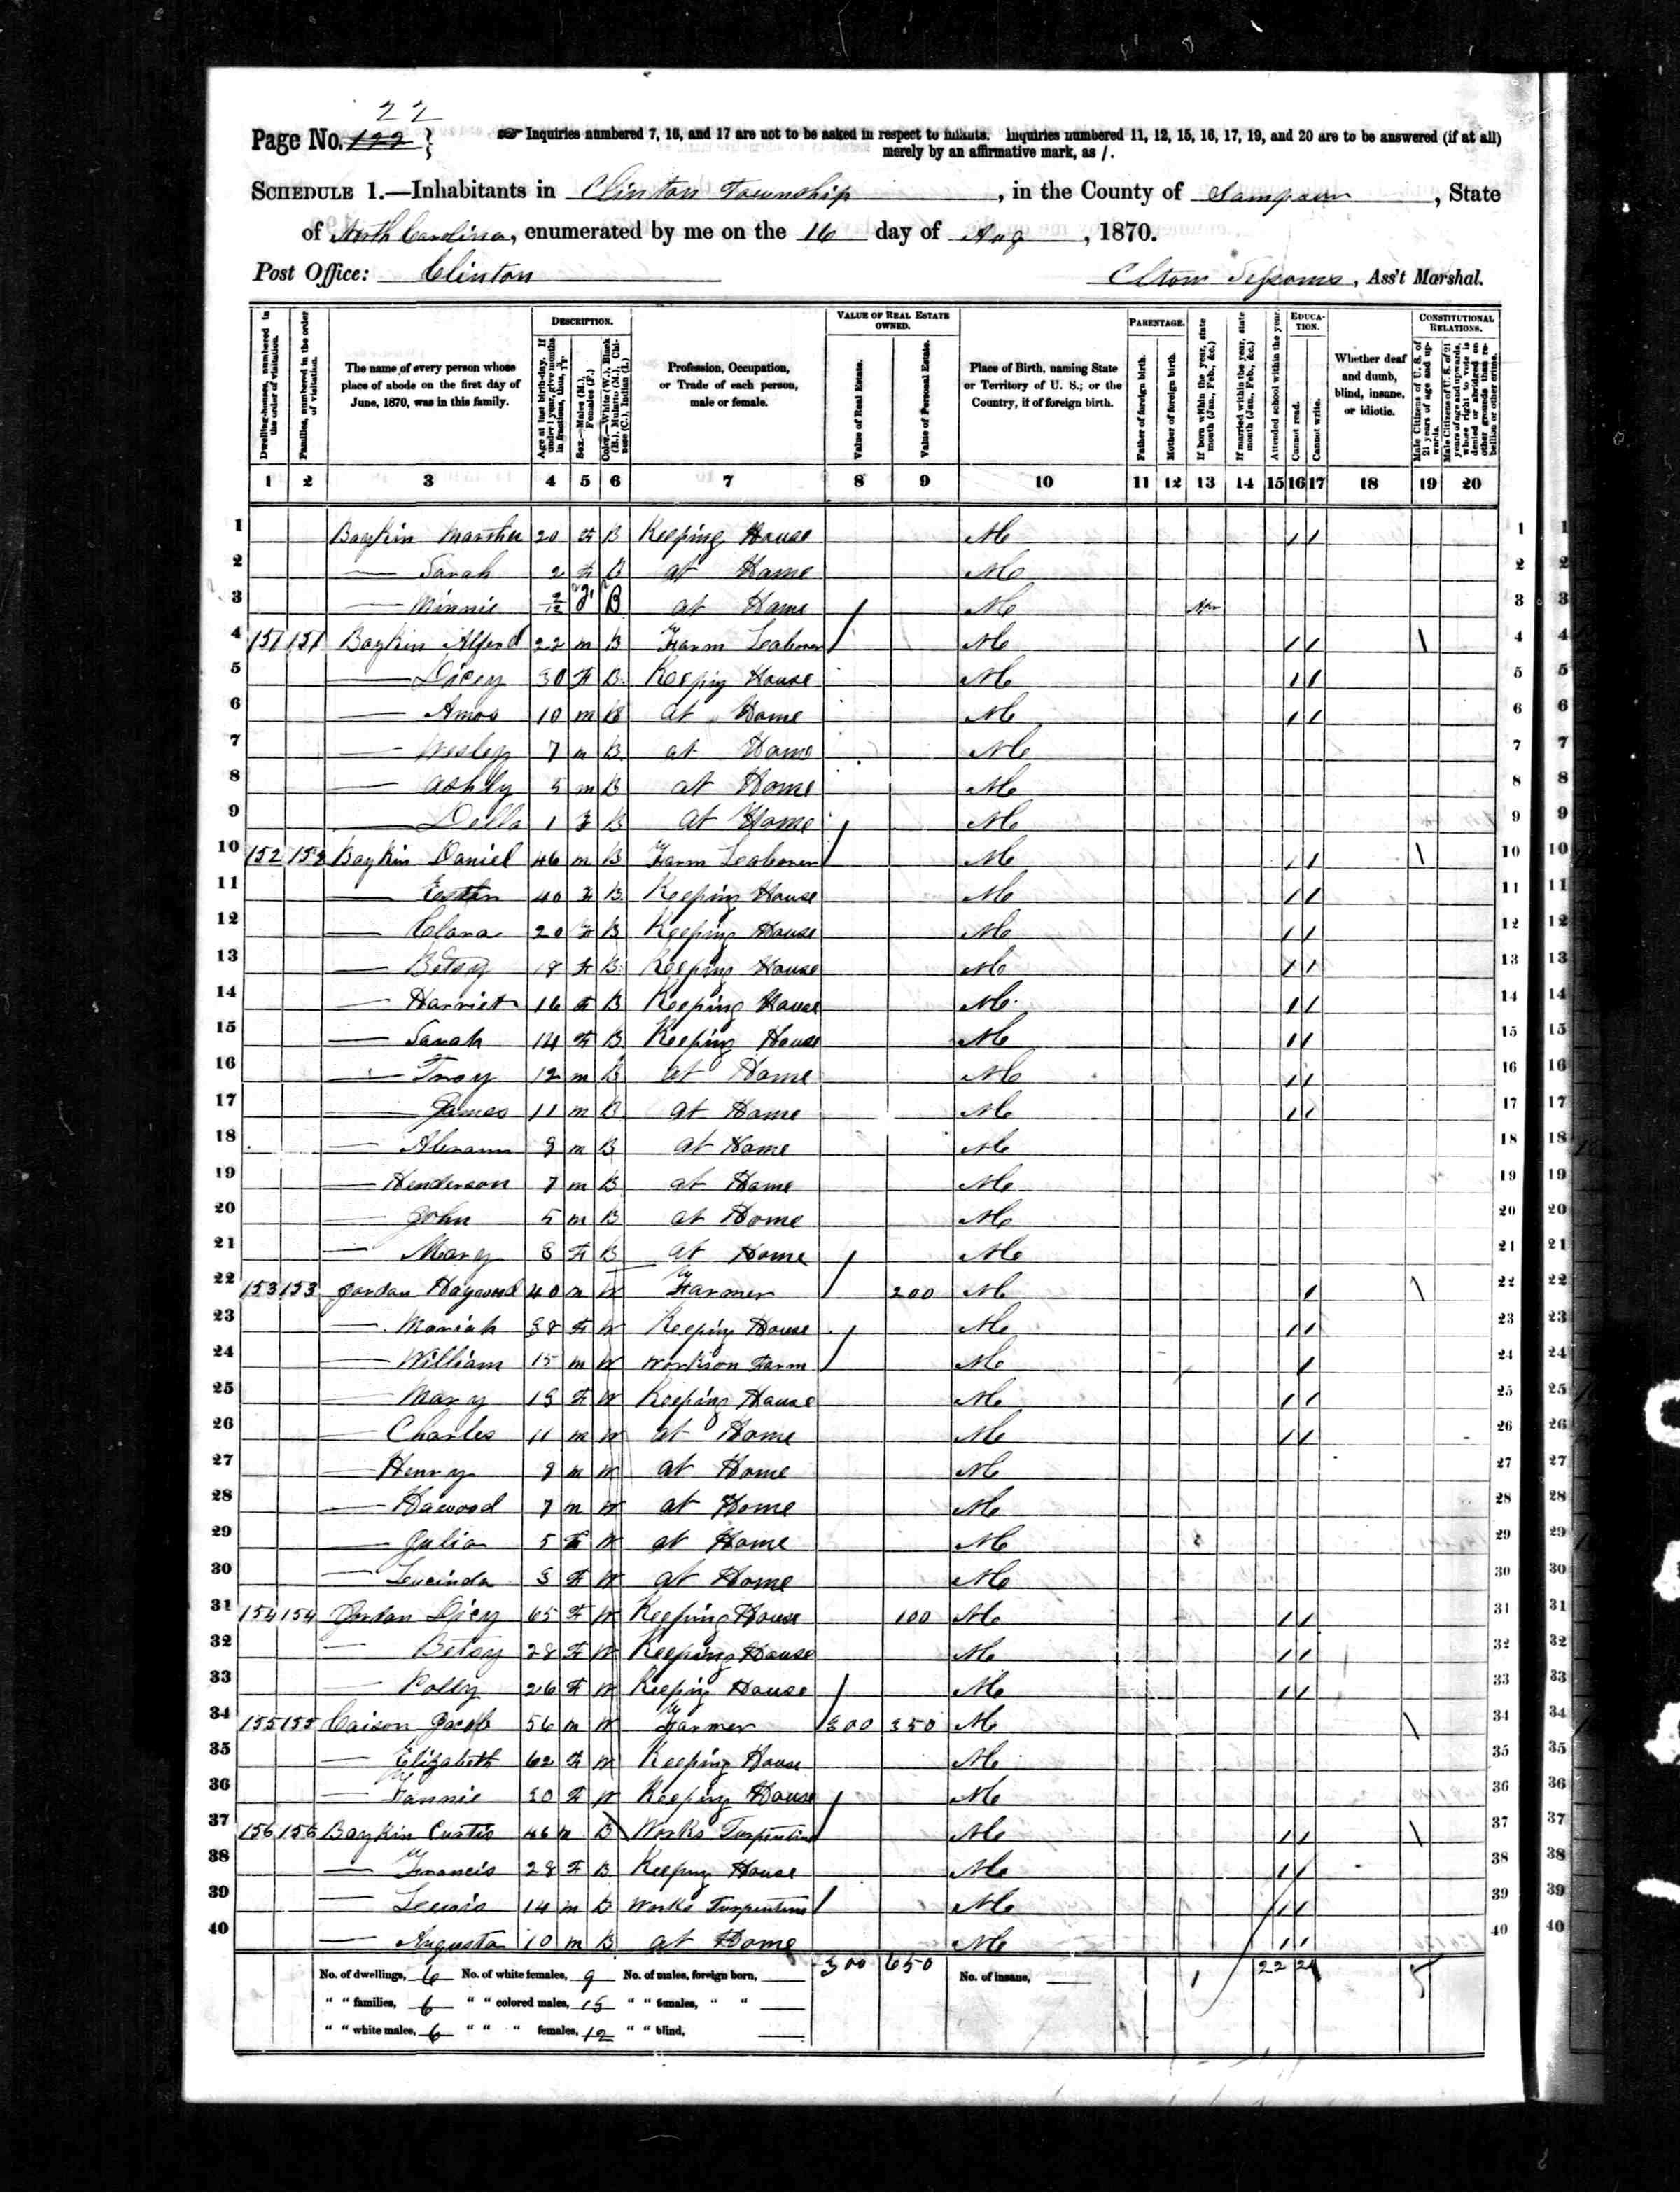 22
Page No. 122 } ☞ Inquiries numbered 7, 16, and 17 are not to be asked in respect to infants. Inquiries numbered 11, 12, 15, 16, 17, 19, and 20 are to be answered (if at all)
merely by an affirmative mark, as /.
SCHEDULE 1.—Inhabitants in Clinton Township, in the County of Sampson, State
of North Carolina, enumerated by me on the 16 day of Aug, 1870.
Post Office: Clinton
Elton Sessoms, Ass't Marshal.
Dwelling-houses, numbered in the order of visitation.
Families, numbered in the order of visitation.
The name of every person whose place of abode on the first day of June, 1870, was in this family.
DESCRIPTION.
Age at last birth-day. If under 1 year, give months in fractions, thus,
Sex.—Males (M.), Females (F.)
Color.—White (W.), Black (B.), Mulatto (M.), Chinese (C.), Indian (I.)
Profession, Occupation, or Trade of each person, male or female.
VALUE OF REAL ESTATE OWNED.
Value of Real Estate.
Value of Personal Estate.
Place of Birth, naming State or Territory of U. S.; or the Country, if of foreign birth.
PARENTAGE.
Father of foreign birth.
Mother of foreign birth.
If born within the year, state month (Jan., Feb., &c.)
If married within the year, state month (Jan., Feb., &c.)
Attended school within the year.
EDUCATION.
Cannot read.
Cannot write.
Whether deaf and dumb, blind, insane, or idiotic.
CONSTITUTIONAL RELATIONS.
Male Citizens of U. S. of 21 years of age and upwards.
Male Citizens of U. S. of 21 years of age and upwards, whose right to vote is denied or abridged on other grounds than rebellion or other crime.
1 2 3 4 5 6 7 8 9 10 11 12 13 14 15 16 17 18 19 20
1 Boykin Marsha 20 F B Keeping House NC / / 1
2 — Sarah 2 F B at Home NC 2
3 — Minnie 2/12 F B at Home NC 3
4 151 151 Boykin Alferd 22 m B Farm Leaborer NC / / \ 4
5 — Dicey 30 F B Keepig House NC / / 5
6 — Amos 10 m B at Home NC / / 6
7 — Wesley 7 m B at Home NC 7
8 — Ashly 5 m B at Home NC 8
9 — Della 1 F B at Home NC 9
10 152 152 Boykin Daniel 46 m B Farm Leaborer NC / / \ 10
11 — Easther 40 F B Keeping House NC / / 11
12 — Clara 20 F B Keeping House NC / / 12
13 — Betsy 18 F B Keeping House NC / / 13
14 — Harriet 16 F B Keeping House NC / / 14
15 — Sarah 14 F B Keeping House NC / / 15
16 — Troy 12 m B at Home NC / / 16
17 — James 11 m B at Home NC / / 17
18 — Abram 9 m B at Home NC 18
19 — Henderson 7 m B at Home NC 19
20 — John 5 m B at Home NC 20
21 — Mary 3 F B at Home NC 21
22 153 153 Jordan Haywood 40 m W Farmer 200 NC / \ 22
23 — Mariah 38 F W Keeping House NC / / 23
24 — William 15 m W Works on Farm NC / 24
25 — Mary 13 F W Keeping House NC / / 25
26 — Charles 11 m W at Home NC / / 26
27 — Henry 9 m W at Home NC 27
28 — Hawood 7 m W at Home NC 28
29 — Julia 5 F W at Home NC 29
30 — Leucinda 3 F W at Home NC 30
31 154 154 Jordan Dicy 65 F W Keeping House 100 NC / / 31
32 — Betsy 28 F W Keeping House NC / / 32
33 — Polly 26 F W Keeping House NC / / 33
34 155 155 Caison Jacob 56 m W Farmer 300 350 NC \ 34
35 — Elizabeth 62 F W Keeping House NC 35
36 — Fannie 30 F W Keeping House NC 36
37 156 156 Boykin Curtis 46 m B Works Turpentine NC / / \ 37
38 — Francis 28 F B Keeping House NC / / 38
39 — Lewis 14 m B Works Turpentine NC / / 39
40 — Augusta 10 m B at Home NC / / 40
No. of dwellings, 6 No. of white females, 9 No. of males, foreign born, 300 650 No. of insane, 1 22 24 5
" " families, 6 " " colored males, 15 " " females, " "
" " white males, 6 " " " females, 12 " " blind,